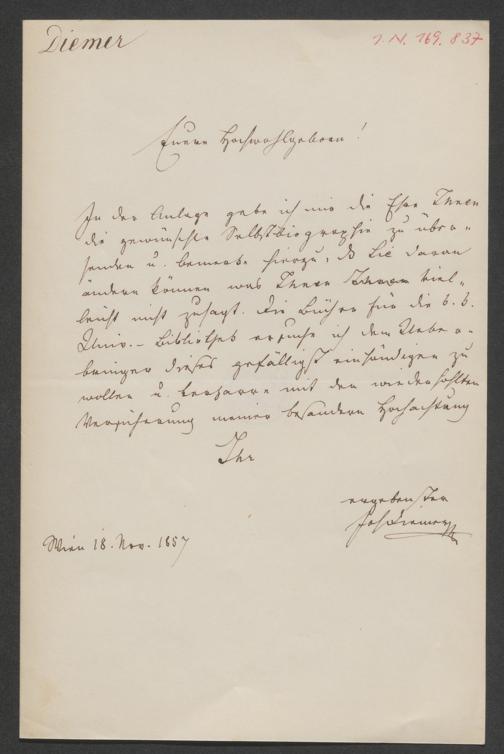 Diemer
I. N. 169.837
Euere Hochwohlgeboren!
In der Anlage gebe ich mir die Ehre Ihnen
die gewünschte Selbstbiographie zu über-
senden u. bemerke hierzu, dß Sie daran
ändern können was Ihnen Ihnen viel-
leicht nicht zusagt. Die Bücher für die k. k.
Univ.- Bibliothek ersuche ich dem Ueber-
bringer dieses gefälligst einhändigen zu
wollen u. verharre mit der wiederholten
Versicherung meiner besondern Hochachtung
Ihr
ergebenster
Jos Diemer
Wien 18. Nov. 1857